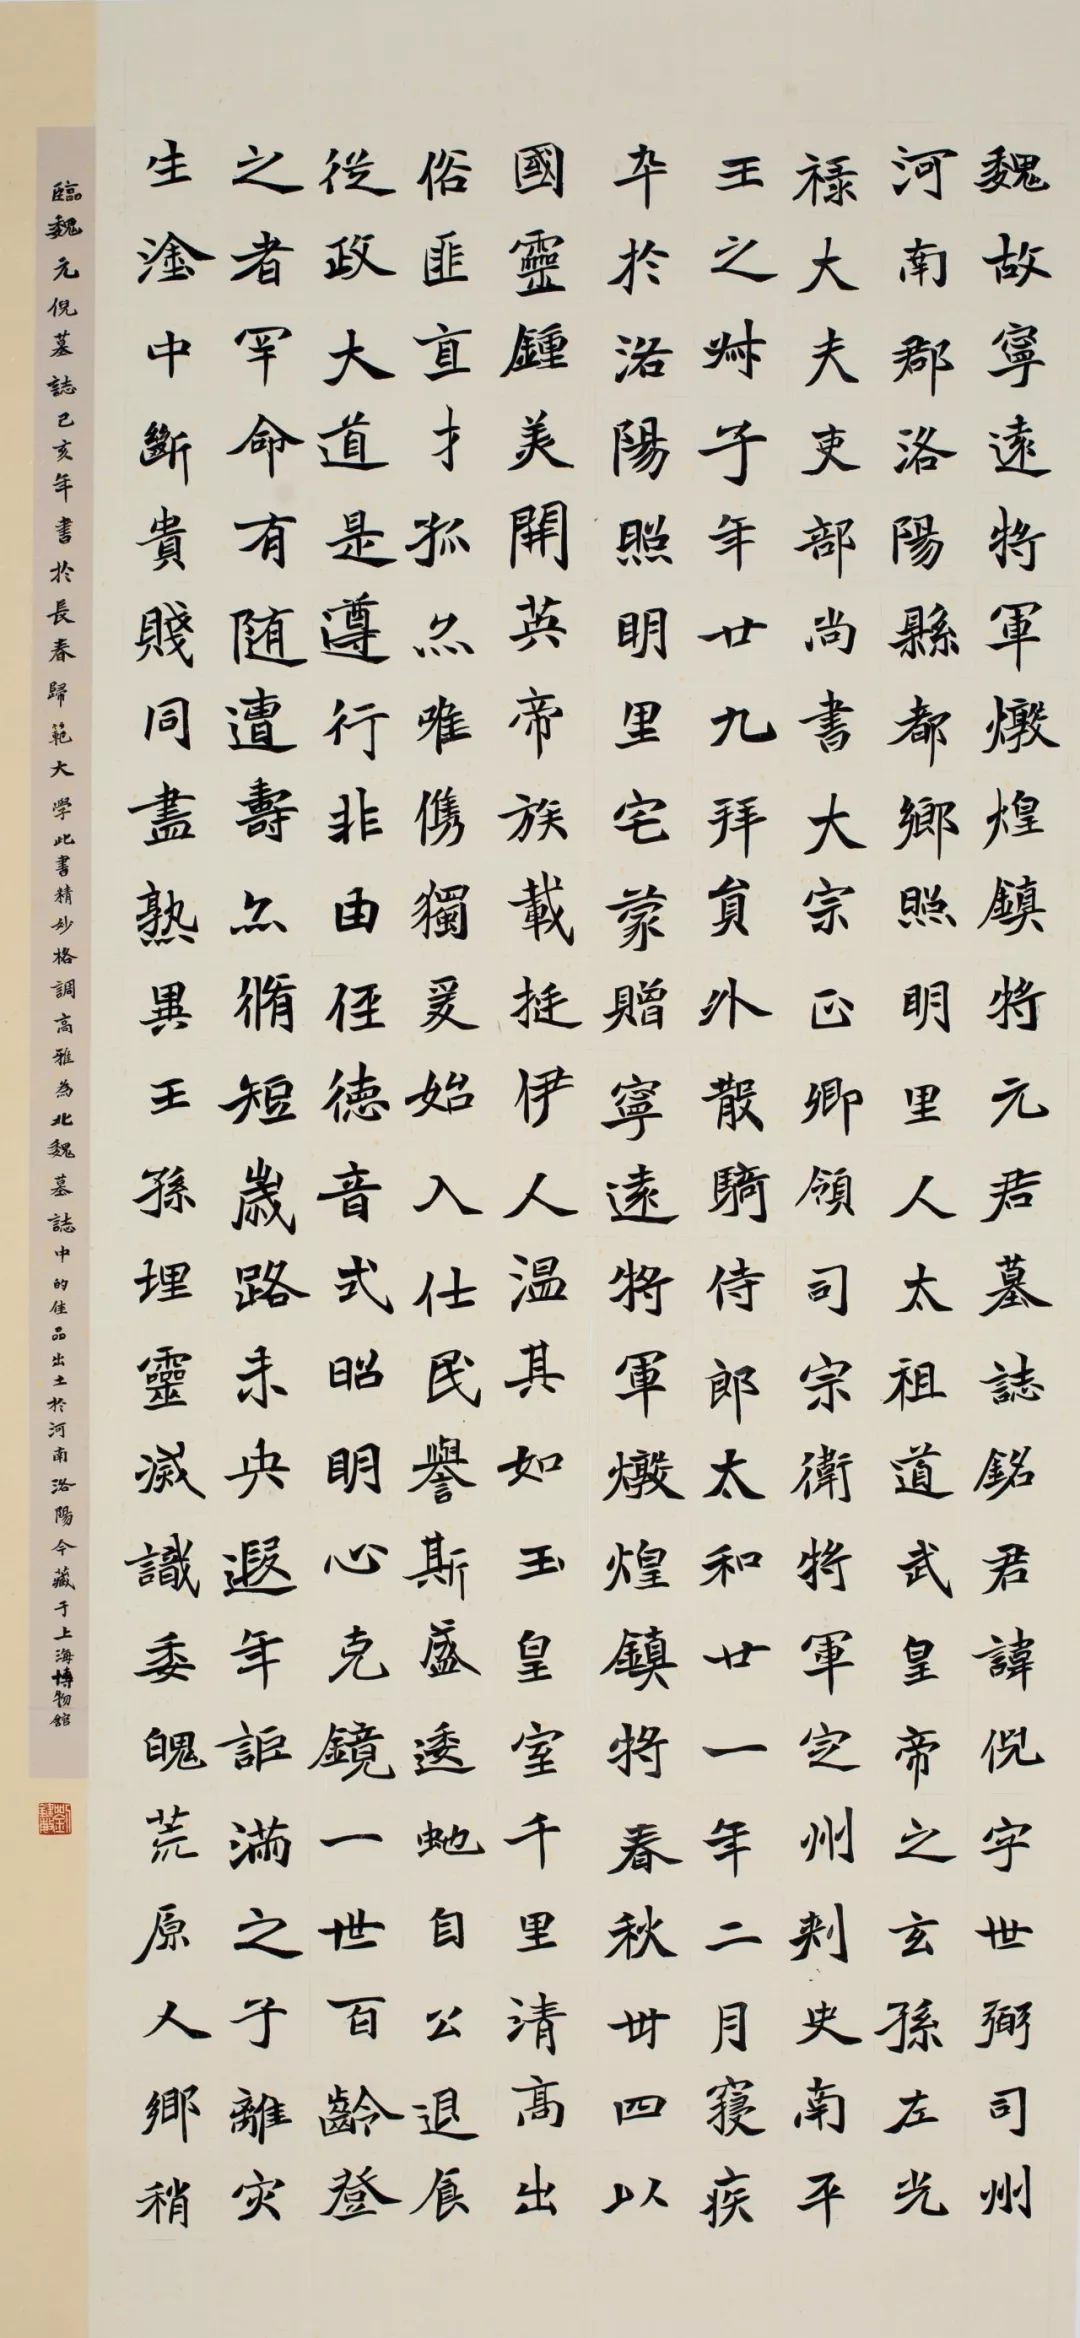 魏故寧遠將軍燉煌鎮將元君墓誌銘君諱倪字世弼司州
河南郡洛陽縣都鄉照明里人太祖道武皇帝之玄孫左光
祿大夫吏部尚書大宗正卿領司宗衛將軍定州刾史南平
王之弟子年廿九拜員外散騎侍郎太和廿一年二月寑疾
卒於洛陽照明里宅蒙贈寧遠將軍燉煌鎮將春秋卅四以
國靈鍾美開英帝族載挺伊人溫其如玉皇室千里清高出
俗匪直才孤亦唯儁獨爰始入仕民譽斯盛逶虵自公退食
從政大道是遵行非由徑德音式昭明心克鏡一世百齡登
之者罕命有随遭壽亦脩短歲路未央遐年詎滿之子離灾
生塗中斷貴賤同盡熟異王孫埋靈滅識委魄荒原人鄉稍
臨魏元倪墓誌己亥年書於長春歸範大學此書精妙格調高雅為北魏墓誌中的佳品出土於河南洛陽今藏于上海博物館